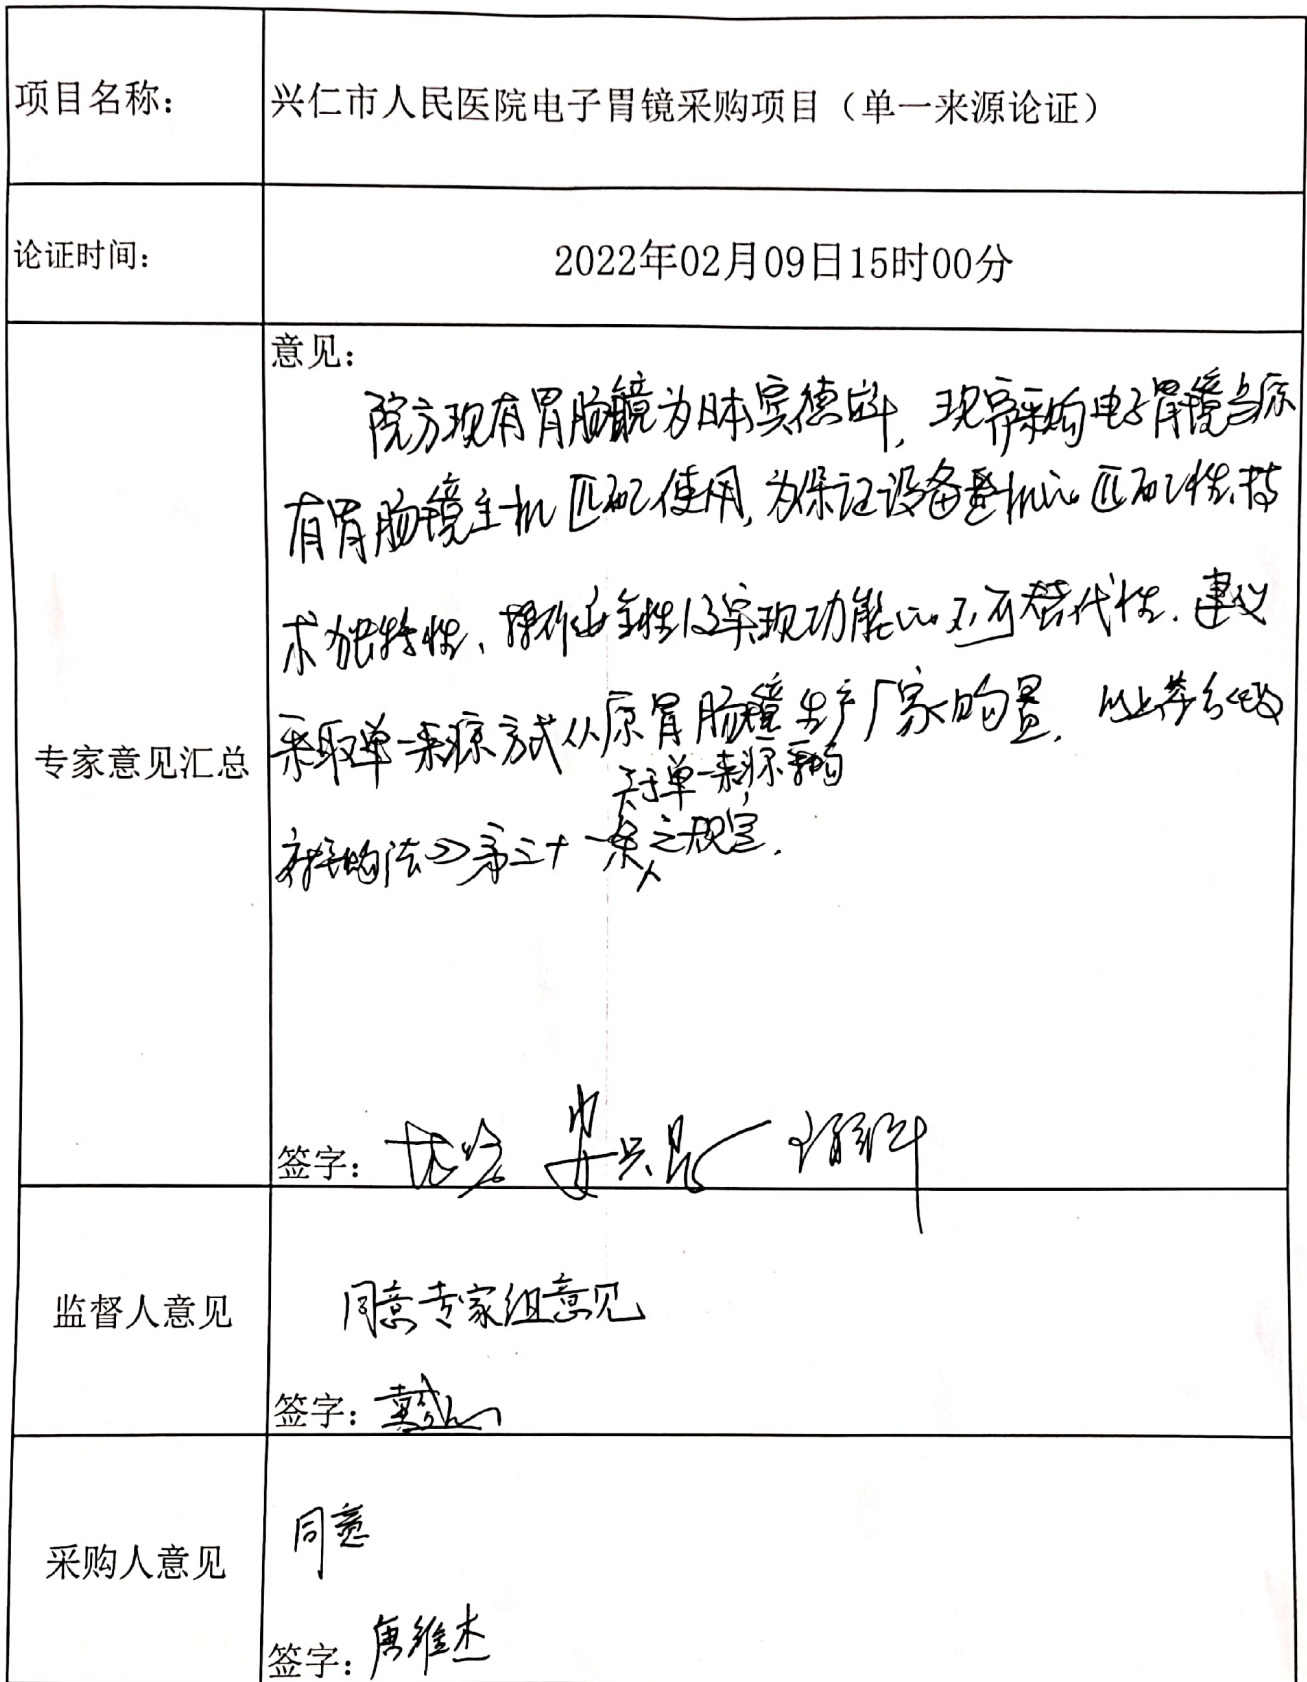 项目名称：
兴仁市人民医院电子胃镜采购项目（单一来源论证）
论证时间：
2022年02月09日15时00分
专家意见汇总
意见：
院方现有胃肠镜为日本宾德，现需采购电子胃镜与原
有胃肠镜主机匹配使用，为保证设备整机的匹配性、技
术独特性、操作安全性及实现功能的不可替代性，建议
采取单一来源方式从原胃肠镜生产厂家购置，以上符合《政
府采购法》第三十一条关于单一来源采购之规定。
签字：
监督人意见
同意专家组意见
签字：
采购人意见
同意
签字：唐维杰